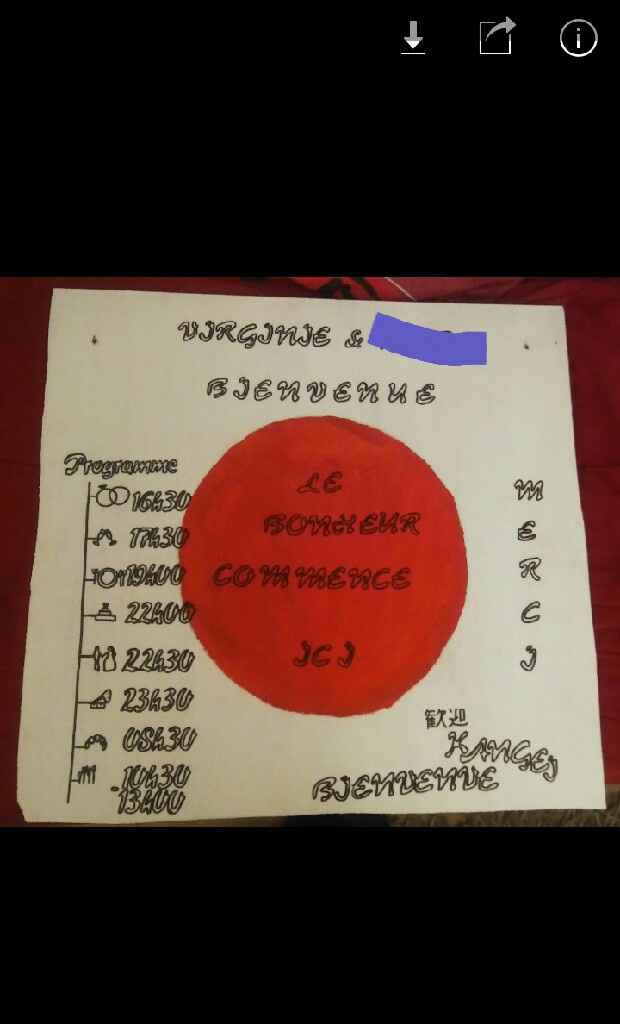 VIRGINIE &
BIENVENUE
Programme
16h30
17h30
19h00
22h00
22h30
23h30
08h30
10h30
-13h00
LE
BONHEUR
COMMENCE
ICI
M
E
R
C
I
歓迎
KANGEI
BIENVENUE